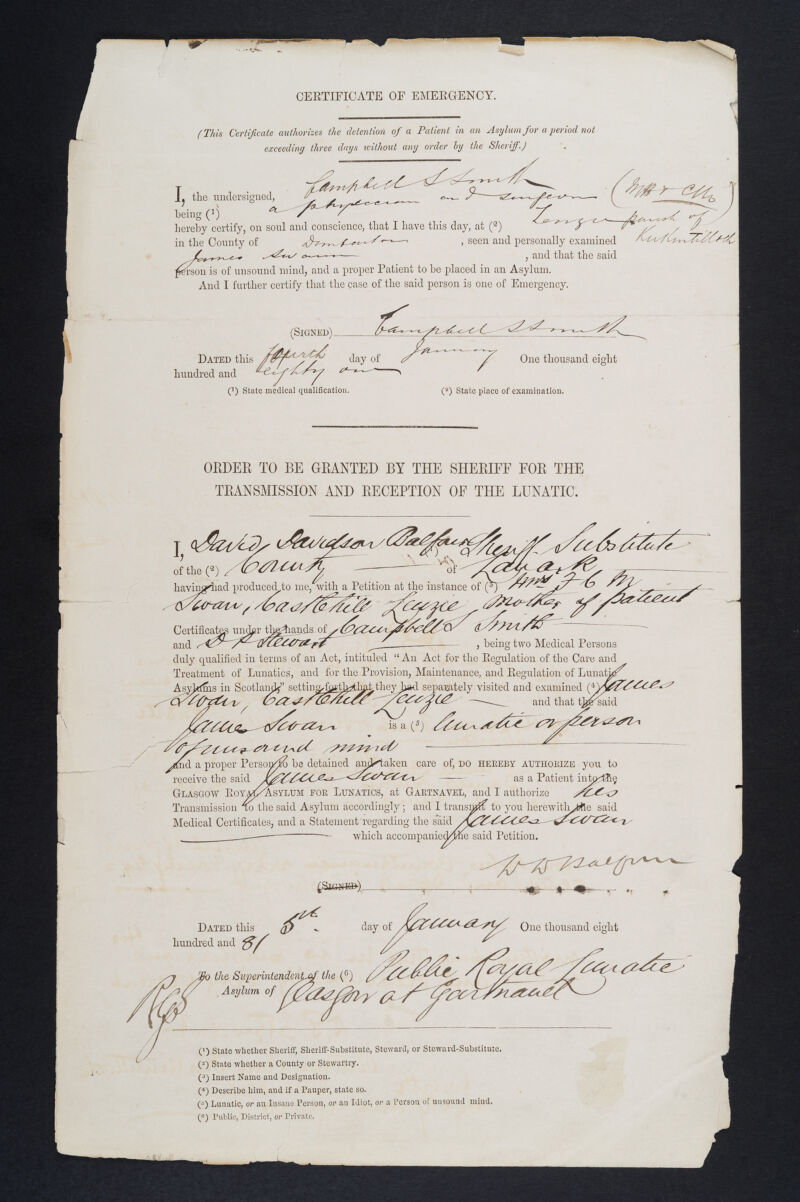 CERTIFICATE OF EMERGENCY.
(This Certificate authorizes the detention of a Patient in an Asylum for a period not
exceeding three days without any order by the Sheriff.)
I, the undersigned, Campbell S Smith
being (¹) a physician and surgeon (MB & CM)
hereby certify, on soul and conscience, that I have this day, at (²) Lenzie parish of
Kirkintilloch
in the County of Dumbarton, seen and personally examined
James Swann, and that the said
person is of unsound mind, and a proper Patient to be placed in an Asylum.
And I further certify that the case of the said person is one of Emergency.
(SIGNED) Campbell S Smith
DATED this fourth day of January One thousand eight
hundred and eighty one
(¹) State medical qualification. (²) State place of examination.
ORDER TO BE GRANTED BY THE SHERIFF FOR THE
TRANSMISSION AND RECEPTION OF THE LUNATIC.
I, David Davidson Balfour Sheriff Substitute
of the (²) County of Lanark
having had produced to me, with a Petition at the instance of (³) Mrs F C M
Swan, Easthill Lenzie, Mother of patient
Certificates under the hands of Campbell S Smith
and D A Stewart, being two Medical Persons
duly qualified in terms of an Act, intituled "An Act for the Regulation of the Care and
Treatment of Lunatics, and for the Provision, Maintenance, and Regulation of Lunatic
Asylums in Scotland," setting forth that they had separately visited and examined (⁴) James
Swan, Easthill Lenzie and that the said
James Swan is a (⁵) lunatic or person
of unsound mind
and a proper Person to be detained and taken care of, DO HEREBY AUTHORIZE you to
receive the said James Swan as a Patient into the
GLASGOW ROYAL ASYLUM FOR LUNATICS, at GARTNAVEL, and I authorize his
Transmission to the said Asylum accordingly; and I transmit to you herewith the said
Medical Certificates, and a Statement regarding the said James Swan
which accompanied the said Petition.
D D Balfour
(SIGNED)
DATED this 5th day of January One thousand eight
hundred and 81
To the Superintendent of the (⁶) Public Royal Lunatic
Asylum of Glasgow at Gartnavel
(¹) State whether Sheriff, Sheriff-Substitute, Steward, or Steward-Substitute.
(²) State whether a County or Stewartry.
(³) Insert Name and Designation.
(⁴) Describe him, and if a Pauper, state so.
(⁵) Lunatic, or an Insane Person, or an Idiot, or a Person of unsound mind.
(⁶) Public, District, or Private.